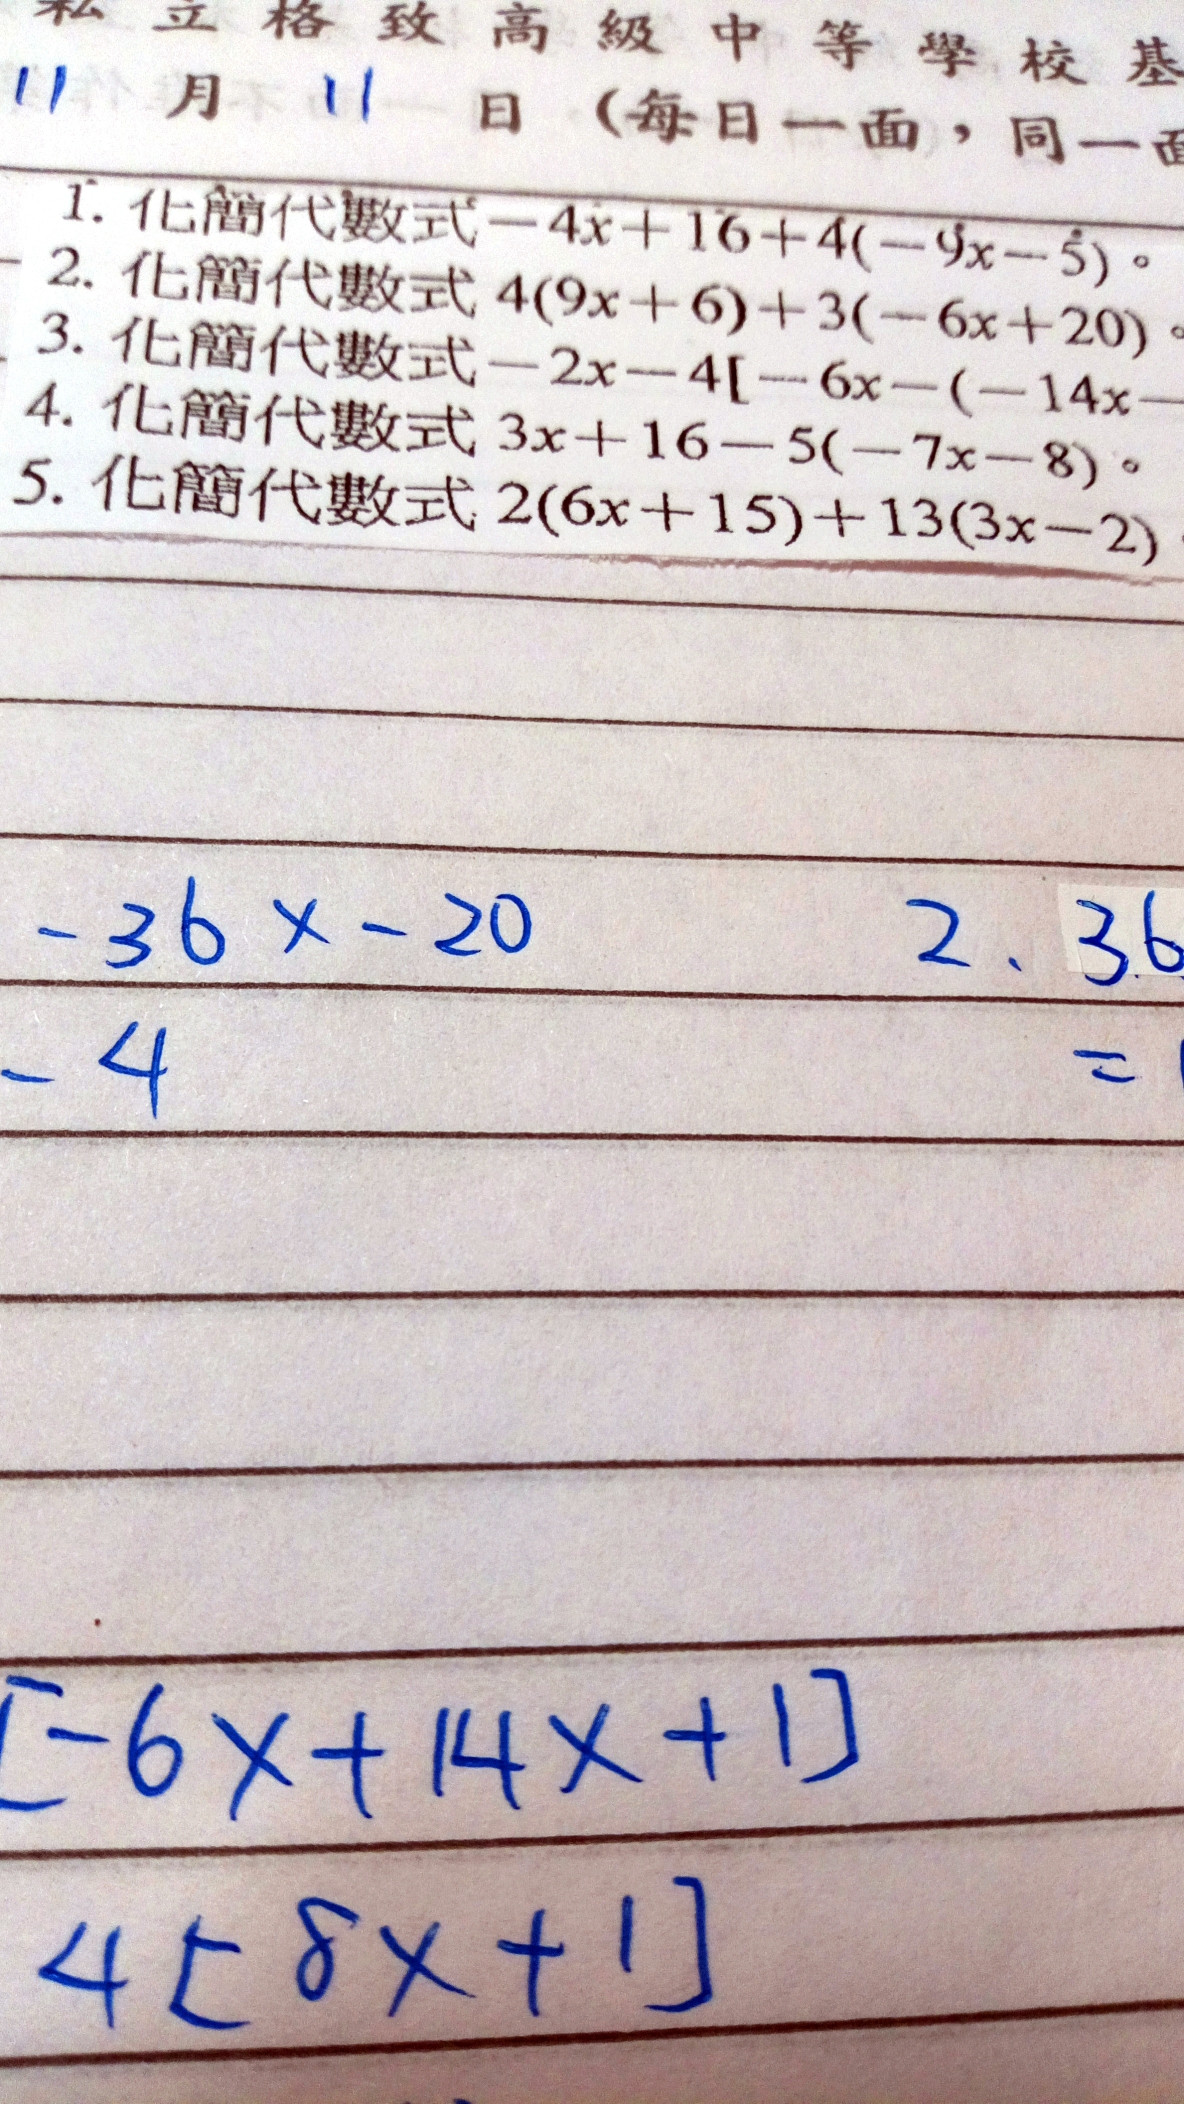 私立格致高級中等學校基
11 月 11 日（每日一面，同一面
1. 化簡代數式－4x＋16＋4(－9x－5)。
2. 化簡代數式 4(9x＋6)＋3(－6x＋20)。
3. 化簡代數式－2x－4[－6x－(－14x－
4. 化簡代數式 3x＋16－5(－7x－8)。
5. 化簡代數式 2(6x＋15)＋13(3x－2)
-36x-20 2、36
-4 =
[-6x+14x+1]
4[8x+1]